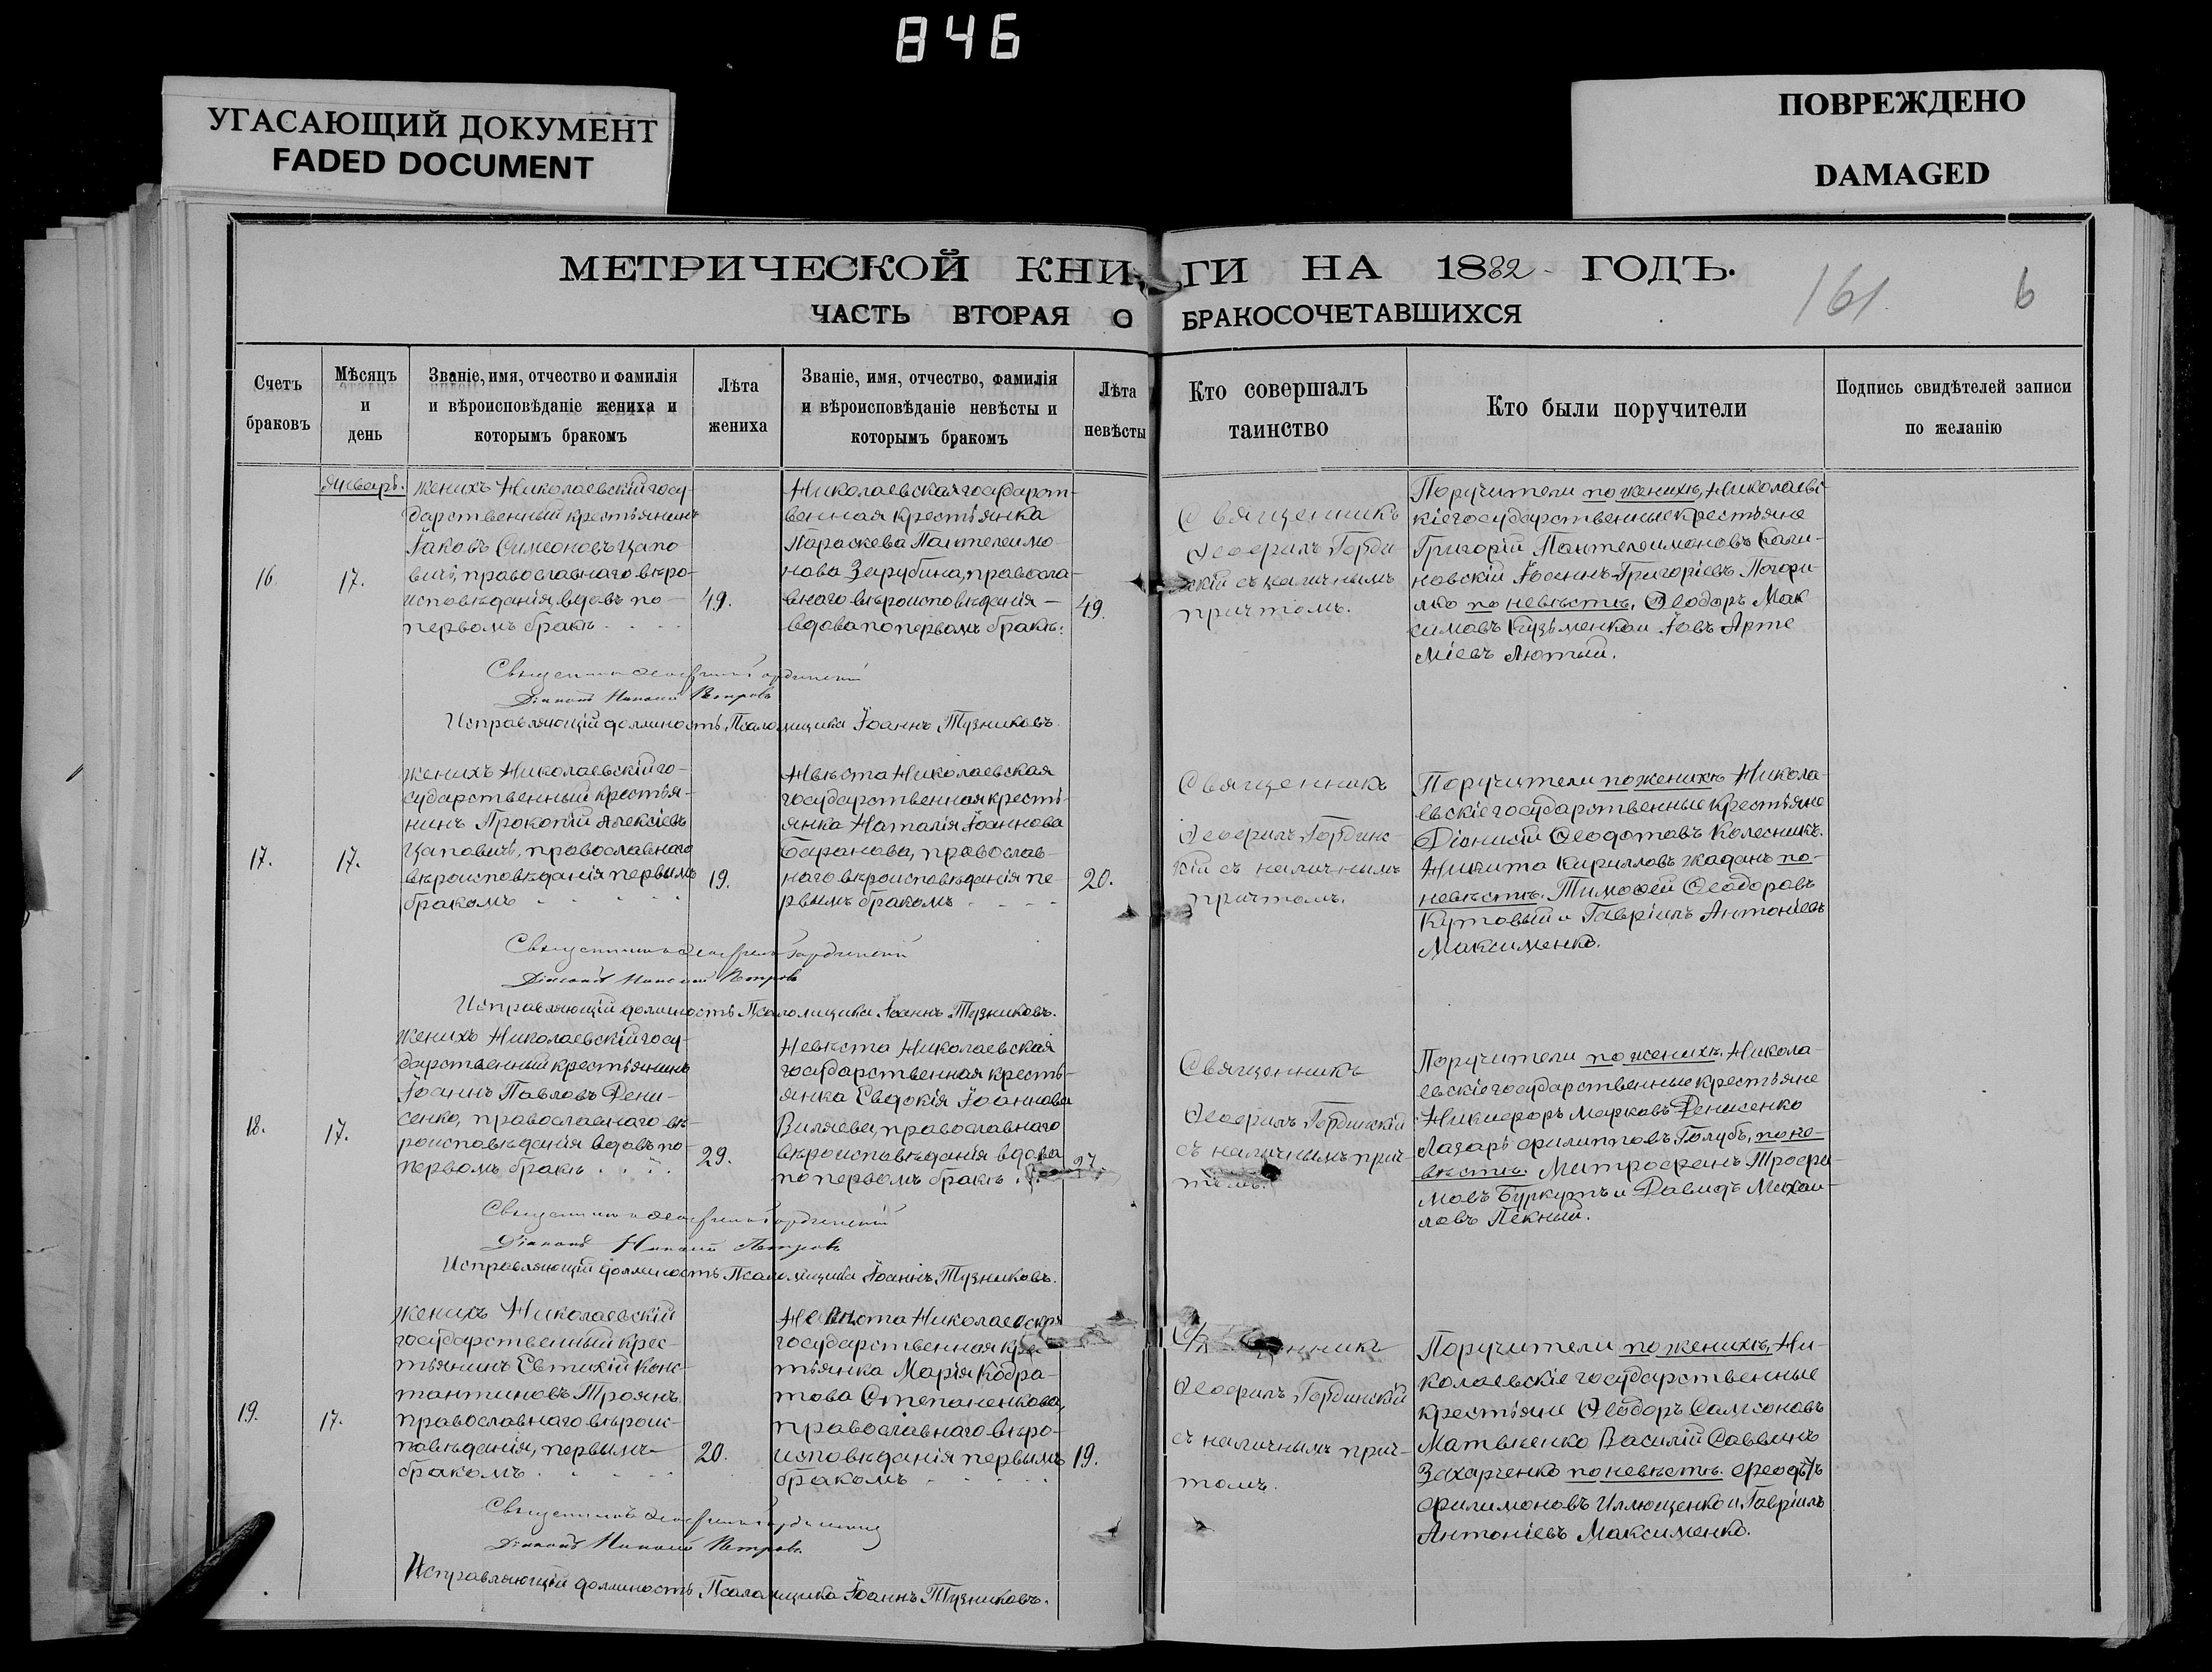 846
УГАСАЮЩИЙ ДОКУМЕНТ
FADED DOCUMENT
ПОВРЕЖДЕНО
DAMAGED
МЕТРИЧЕСКОЙ КНИГИ НА 1882 ГОДЪ.
161. 6
ЧАСТЬ ВТОРАЯ О БРАКОСОЧЕТАВШИХСЯ
Счетъ
браковъ
Мѣсяцъ
и
день
Званіе, имя, отчество и фамилія
и вѣроисповѣданіе жениха и
которымъ бракомъ
Лѣта
жениха
Званіе, имя, отчество, фамилія
и вѣроисповѣданіе невѣсты и
которымъ бракомъ
Лѣта
невѣсты
Кто совершалъ
таинство
Кто были поручители
Подпись свидѣтелей записи
по желанію
Январь.
16.
17.
Женихъ Николаевскій госу-
дарственный крестьянинъ
Іаковъ Симеоновъ Цапо-
вичъ, православнаго вѣро-
исповѣданія, вдовъ по-
первомъ бракѣ
49.
Николаевская государст-
венная крестьянка
Параскева Пантелеимо-
нова Зарубина, правосла-
внаго вѣроисповѣданія —
вдова по первомъ бракѣ.
49.
Священникъ
Ѳеофилъ Горди
скій съ наличнымъ
причтомъ.
Поручители по женихѣ, Николаевс-
кіе государственные крестьяне
Григорій Пантелеимоновъ Кали-
новскій Іоаннъ Григоріевъ Погори-
ло по невѣстѣ, Ѳеодоръ Мак
симовъ Кузьменко и Іовъ Арте
міевъ Лютый.
Священникъ Ѳеофилъ Гординскій
Діаконъ Петровъ
Исправляющій должность Псаломщика Іоаннъ Тузниковъ.
17.
17.
Женихъ Николаевскій го-
сударственный крестья-
нинъ Прокопій Алексіевъ
Цаповичъ, православнаго
вѣроисповѣданія первымъ
бракомъ
19.
Невѣста Николаевская
государственная кресть-
янка Наталія Іоаннова
Баранова, православ-
наго вѣроисповѣданія пе-
рвымъ бракомъ
20.
Священникъ
Ѳеофилъ Гординс-
кій съ наличнымъ
причтомъ.
Поручители по женихѣ Никола-
евскіе государственные крестьяне
Діонисій Ѳеодотовъ Колесникъ.
Никита Кирилловъ Жаданъ по-
невѣстѣ. Тимофей Ѳеодоровъ
Кутовый и Гавріилъ Антоніевъ
Максименко.
Священникъ Ѳеофилъ Гординскій
Діаконъ Петровъ
Исправляющій должность Псаломщика Іоаннъ Тузниковъ.
18.
17.
Женихъ Николаевскій госу-
дарственный крестьянинъ
Іоаннъ Павловъ Дени-
сенко, православнаго вѣ-
роисповѣданія вдовъ по-
первомъ бракѣ
29.
Невѣста Николаевская
государственная кресть-
янка Евдокія Іоаннова
Виляева, православнаго
вѣроисповѣданія вдова
по первомъ бракѣ
27.
Священникъ
Ѳеофилъ Гординскій
съ наличнымъ прич-
томъ.
Поручители по женихѣ, Никола-
евскіе государственные крестьяне
Никифоръ Марковъ Денисенко
Лазарь Филипповъ Голубъ, по не-
вѣстѣ. Митрофанъ Трофи-
мовъ Буркутъ и Давидъ Михаи-
ловъ Пекный.
Священникъ Ѳеофилъ Гординскій
Діаконъ Петровъ
Исправляющій должность Псаломщика Іоаннъ Тузниковъ.
19.
17.
Женихъ Николаевскій
государственный крес-
тьянинъ Евтихій Конс-
тантиновъ Троянъ
православнаго вѣроис-
повѣданія, первымъ
бракомъ
20.
Невѣста Николаевская
государственная крес
тьянка Марія Кодра-
това Степаненкова,
православнаго вѣро-
исповѣданія первымъ
бракомъ
19.
Ѳеофилъ Гординскій
съ наличнымъ прич-
томъ.
Поручители по женихѣ, Ни-
колаевскіе государственные
крестьяне Ѳеодоръ Самсоновъ
Матвѣенко Василій Саввинъ
Захарченко по невѣстѣ.
Филимоновъ Иллющенко и Гавріилъ
Антоніевъ Максименко.
Священникъ Ѳеофилъ Гординскій
Діаконъ Петровъ.
Исправляющій должность Псаломщика Іоаннъ Тузниковъ.